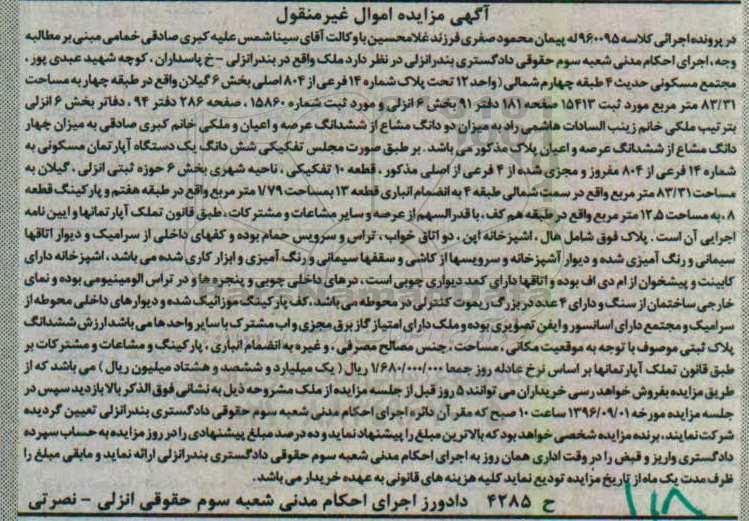 آگهی مزایده اموال غیر منقول
در پرونده اجرائی کلاسه ۹۶۰۰۹۵ له پیمان محمود صفری فرزند غلامحسین با وکالت آقای سینا شمس علیه کبری صادقی خمامی مبنی بر مطالبه
وجه، اجرای احکام مدنی شعبه سوم حقوقی دادگستری بندرانزلی در نظر دارد ملک واقع در بندرانزلی - خ پاسداران، کوچه شهید عبدی پور،
مجتمع مسکونی حدیث ۴ طبقه چهارم شمالی (واحد ۱۲ تحت پلاک شماره ۱۴ فرعی از ۸۰۴ اصلی بخش ۶ گیلان واقع در طبقه چهار به مساحت
۸۳/۳۱ متر مربع مورد ثبت ۱۵۴۱۳ صفحه ۱۸۱ دفتر ۹۱ بخش ۶ انزلی و مورد ثبت شماره ۱۵۸۶۰، صفحه ۲۸۶ دفتر ۹۴، دفاتر بخش ۶ انزلی
بترتیب ملکی خانم زینب السادات هاشمی راد به میزان دو دانگ مشاع از ششدانگ عرصه و اعیان و ملکی خانم کبری صادقی به میزان چهار
دانگ مشاع از ششدانگ عرصه و اعیان پلاک مذکور می باشد. بر طبق صورت مجلس تفکیکی شش دانگ یک دستگاه آپارتمان مسکونی به
شماره ۱۴ فرعی از ۸۰۴ مفروز و مجزی شده از ۴ فرعی از اصلی مذکور، قطعه ۱۰ تفکیکی، ناحیه شهری بخش ۶ حوزه ثبتی انزلی، گیلان به
مساحت ۸۳/۳۱ متر مربع واقع در سمت شمالی طبقه ۴ به انضمام انباری قطعه ۱۳ بمساحت ۱/۷۹ متر مربع واقع در طبقه هفتم و پارکینگ قطعه
۸، به مساحت ۱۲.۵ متر مربع واقع در طبقه هم کف، با قدرالسهم از عرصه و سایر مشاعات و مشترکات، طبق قانون تملک آپارتمانها و ایین نامه
اجرایی آن است. پلاک فوق شامل هال، اشپزخانه اپن، دو اتاق خواب، تراس و سرویس حمام بوده و کفهای داخلی از سرامیک و دیوار اتاقها
سیمانی و رنگ آمیزی شده و دیوار آشپزخانه و سرویسها از کاشی و سقفها سیمانی و رنگ آمیزی و ابزار کاری شده می باشد، اشپزخانه دارای
کابینت و پیشخوان از ام دی اف بوده و اتاقها دارای کمد دیواری چوبی است، درهای داخلی چوبی و پنجره ها و در تراس الومینیومی بوده و نمای
خارجی ساختمان از سنگ و دارای ۴ عدد در بزرگ ریموت کنترلی در محوطه می باشد، کف پارکینگ موزائیک شده و دیوارهای داخلی محوطه از
سرامیک و مجتمع دارای اسانسور و ایفن تصویری بوده و ملک دارای امتیاز گاز برق مجزی و اب مشترک با سایر واحدها می باشد ارزش ششدانگ
پلاک ثبتی موصوف با توجه به موقعیت مکانی، مساحت، جنس مصالح مصرفی، و غیره به انضمام انباری، پارکینگ و مشاعات و مشترکات بر
طبق قانون تملک آپارتمانها بر اساس نرخ عادله روز جمعا ۱/۶۸۰/۰۰۰/۰۰۰ ریال (یک میلیارد و ششصد و هشتاد میلیون ریال) می باشد که از
طریق مزایده بفروش خواهد رسی خریداران می توانند ۵ روز قبل از جلسه مزایده از ملک مشروحه ذیل به نشانی فوق الذکر بالا بازدید سپس در
جلسه مزایده مورخه ۱۳۹۶/۰۹/۰۱ ساعت ۱۰ صبح که مقر آن دائره اجرای احکام مدنی شعبه سوم حقوقی دادگستری بندرانزلی تعیین گردیده
شرکت نمایند، برنده مزایده شخصی خواهد بود که بالاترین مبلغ را پیشنهاد نماید و ده درصد مبلغ پیشنهادی را در روز مزایده به حساب سپرده
دادگستری واریز و قبض را در وقت اداری همان روز به اجرای احکام مدنی شعبه سوم حقوقی دادگستری بندرانزلی ارائه نماید و مابقی مبلغ را
ظرف مدت یک ماه از تاریخ مزایده تودیع نماید کلیه هزینه های قانونی به عهده خریدار می باشد.
ح ۴۲۸۵ دادورز اجرای احکام مدنی شعبه سوم حقوقی انزلی - نصرتی